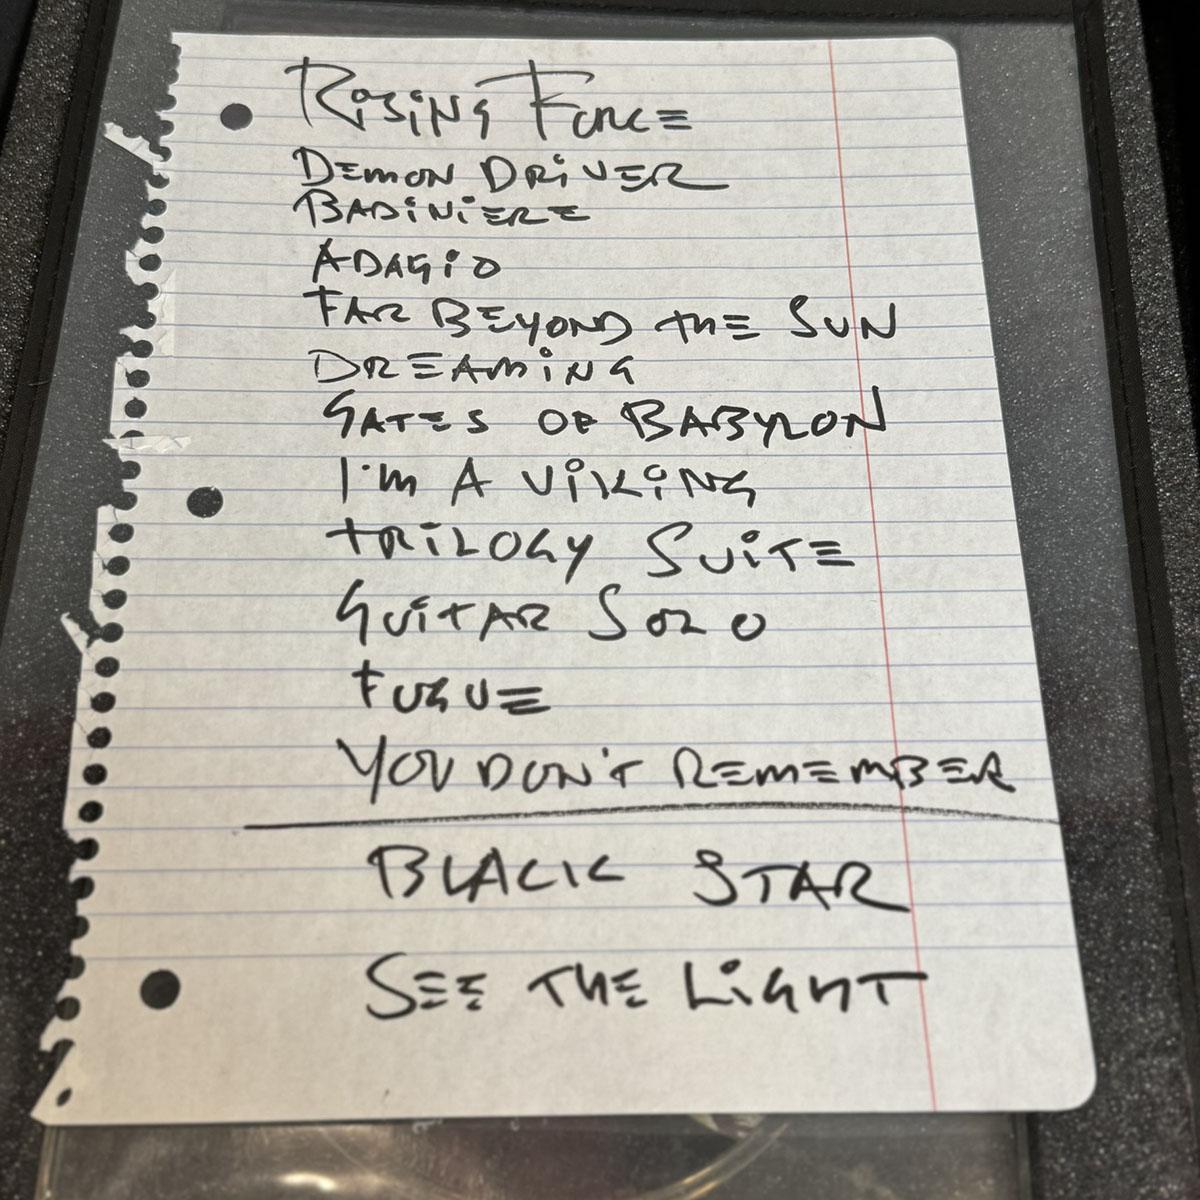 RISING FORCE
DEMON DRIVER
BADINIERE
ADAGIO
FAR BEYOND THE SUN
DREAMING
GATES OF BABYLON
I'M A VIKING
TRILOGY SUITE
GUITAR SOLO
FUGUE
YOU DON'T REMEMBER
BLACK STAR
SEE THE LIGHT